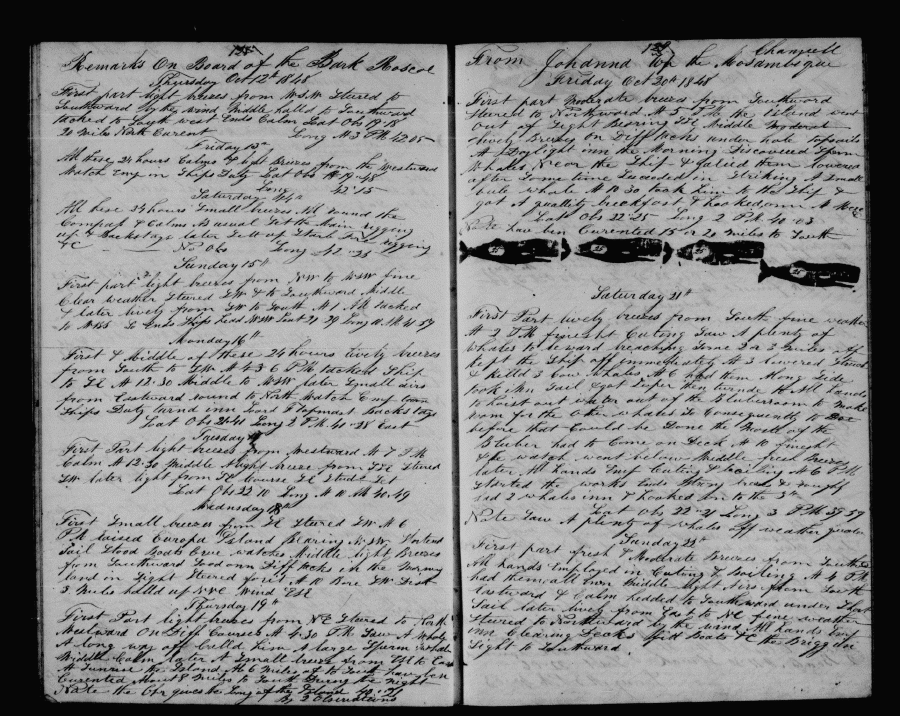 Remarks On Board of the Bark Roscoe
Thursday Oct 12th 1848
First part light breezes from W.S.W Stered to
Southward by the wind Middle halld to Southward
tacked to South west Ends Calm Lat Obs 19"18
20 Miles North Curent Long M 3 PM 42"05
Friday 13th
All these 24 hours Calms & light Breezes from the Westward
Watch Emp on Ships Duty Lat Obs 19"48
Long 42"15
Saturday 14th
All these 24 hours Small breezes All round the
Compass & Calms As usual Set the Main rigging
up & Backstays later fore rigging
&C No Obs Long 42"25
Sunday 15th
First part light breezes from NW to WSW fine
Clear weather Stered SW & to Southward Middle
& later lively from SW to South M 1 PM tacked
to West So Ends Ships head WSW Lat 21"29 Long 41"57
Monday 16th
First & Middle of these 24 hours lively breezes
from South to SW At 3 & 6 PM tacked Ship
to SE At 12"30 Middle to WSW later Small airs
from Eastward round to North Watch Emp on
Ships Duty
Lat Obs 21"41 Long 2 PM 41"28 East
Tuesday 17
First Part light breezes from Westward At 7 PM
Calm At 12"30 Middle A light breeze from SSE Stered
SW later light from SE Course
Lat Obs 22"10 Long M 10 AM 40"49
Wednesday 18th
First Small breezes from SE Stered SW At 6
PM raised Europa Island bearing W.S.W. Shortend
Sail Stood Boats Crue watches Middle light Breezes
from Southward Stood on Diff tacks in the Morning
land in Sight Stered for it At 10 Bore SW Dist
3 Miles halld up NNE Wind ESE
Thursday 19th
First Part light breezes from NE Stered to North
Westward On Diff Courses At 4"30 PM Saw A Whale
A long way off Calld him A large Sperm Whale
Middle Calm later A Small breeze from SSE to East
At Sunrise the Island 6 Miles to South have ben
Curented About 8 Miles to South During the night
Note the Cpr gives the Long of the Island 40"21
By 2 Observations
From Johanna to the Mosambeque Channell
Friday Oct 20th 1848
First part Moderate breezes from Southward
Stered to Northward At 5 PM the Island went
Out of Sight Bearing SSE Middle Moderat
lively Breezes on Diff tacks under hole topsails
At Daylight inn the Morning Discovered Sperm
Whales Near the Ship & Galied them lowered
after Some time Succeded in Striking A Small
bull whale At 10 30 took him to the Ship &
got A quallity breakfast & hooked on At Noon
Lat Obs 22"25 Long 2 PM 40"03
Note have ben Curented 15 or 20 Miles to South
25
25
25
25
Saturday 21st
First Part lively breezes from South fine weather
At 2 PM finesht Cuting Saw A plenty of
Whales to leward reaching Some 2 or 3 Miles off
Kept the Ship off immediately At 3 lowered Struck
& Killd 3 Cow Whales At 6 had them Along Side
took Inn Sail & got Super then turnde to All hands
to hoist out water out of the Bluberroom to Make
room for the Other whales So Consequently to Be
before that Could be Done the Most of the
Bluber had to Come on Deck At 10 finesht
& the watch went below Middle fresh breezes
later All hands Emp Cuting & boiling At 6 PM
Started the works Ends Strong breeze & rugged
had 2 whales inn & hooked on to the 3rd
Lat Obs 22"21 Long 3 PM 39"59
Note Saw A plenty of whales Off weather quarter
Sunday 22nd
First part fresh & Moderate Breezes from Southward
All hands Employed in Cuting & Boiling At 4 PM
had them all inn Middle light Airs from South
Eastward & Calm hedded to Southward under Short
Sail later lively from East to NE fine weather
Stered to Northward by the wind All hands Emp
inn Clearing Decks and Boats &C the Brigg in
Sight to Southward